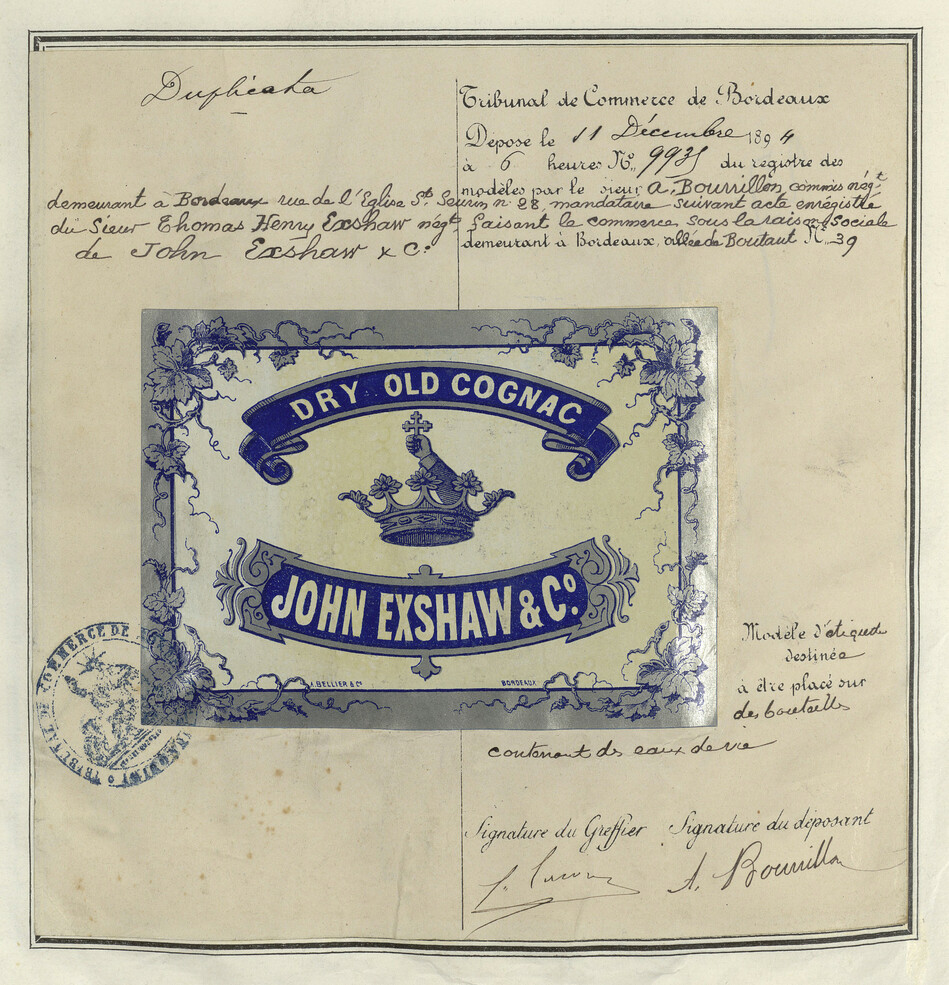 Duplicata
Tribunal de Commerce de Bordeaux
Déposé le 11 Décembre 1894
à 6 heures No. 9935 du registre des
modèles par le sieur A. Bourrillon, commis négt
demeurant à Bordeaux rue de l'Eglise St. Seurin no 28, mandataire suivant acte enrégistré
du Sieur Thomas Henry Exshaw négt, faisant le commerce sous la raison Sociale
de John Exshaw & Co. demeurant à Bordeaux, allée de Boutaut No. 39
DRY OLD COGNAC
JOHN EXSHAW & Co.
A. BELLIER & Co BORDEAUX
TRIBUNAL DE COMMERCE DE
Modèle d'étiquette
destinée
à être placé sur
des bouteilles
contenant des eaux de vie
Signature du Greffier Signature du déposant
A. Bourrillon